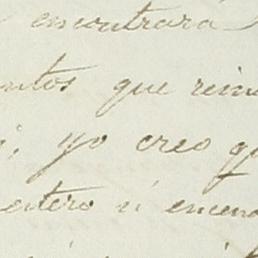 encontrará
ntos que rein
yo creo q
entero ni encen